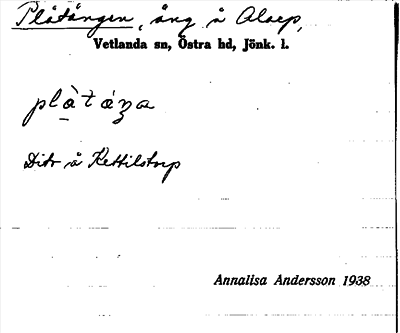 Plåtängen, äng å Alsep,
Vetlanda sn, Östra hd, Jönk. l.
plàtáŋa
Dito å Kettilstorp
Annalisa Andersson 1938